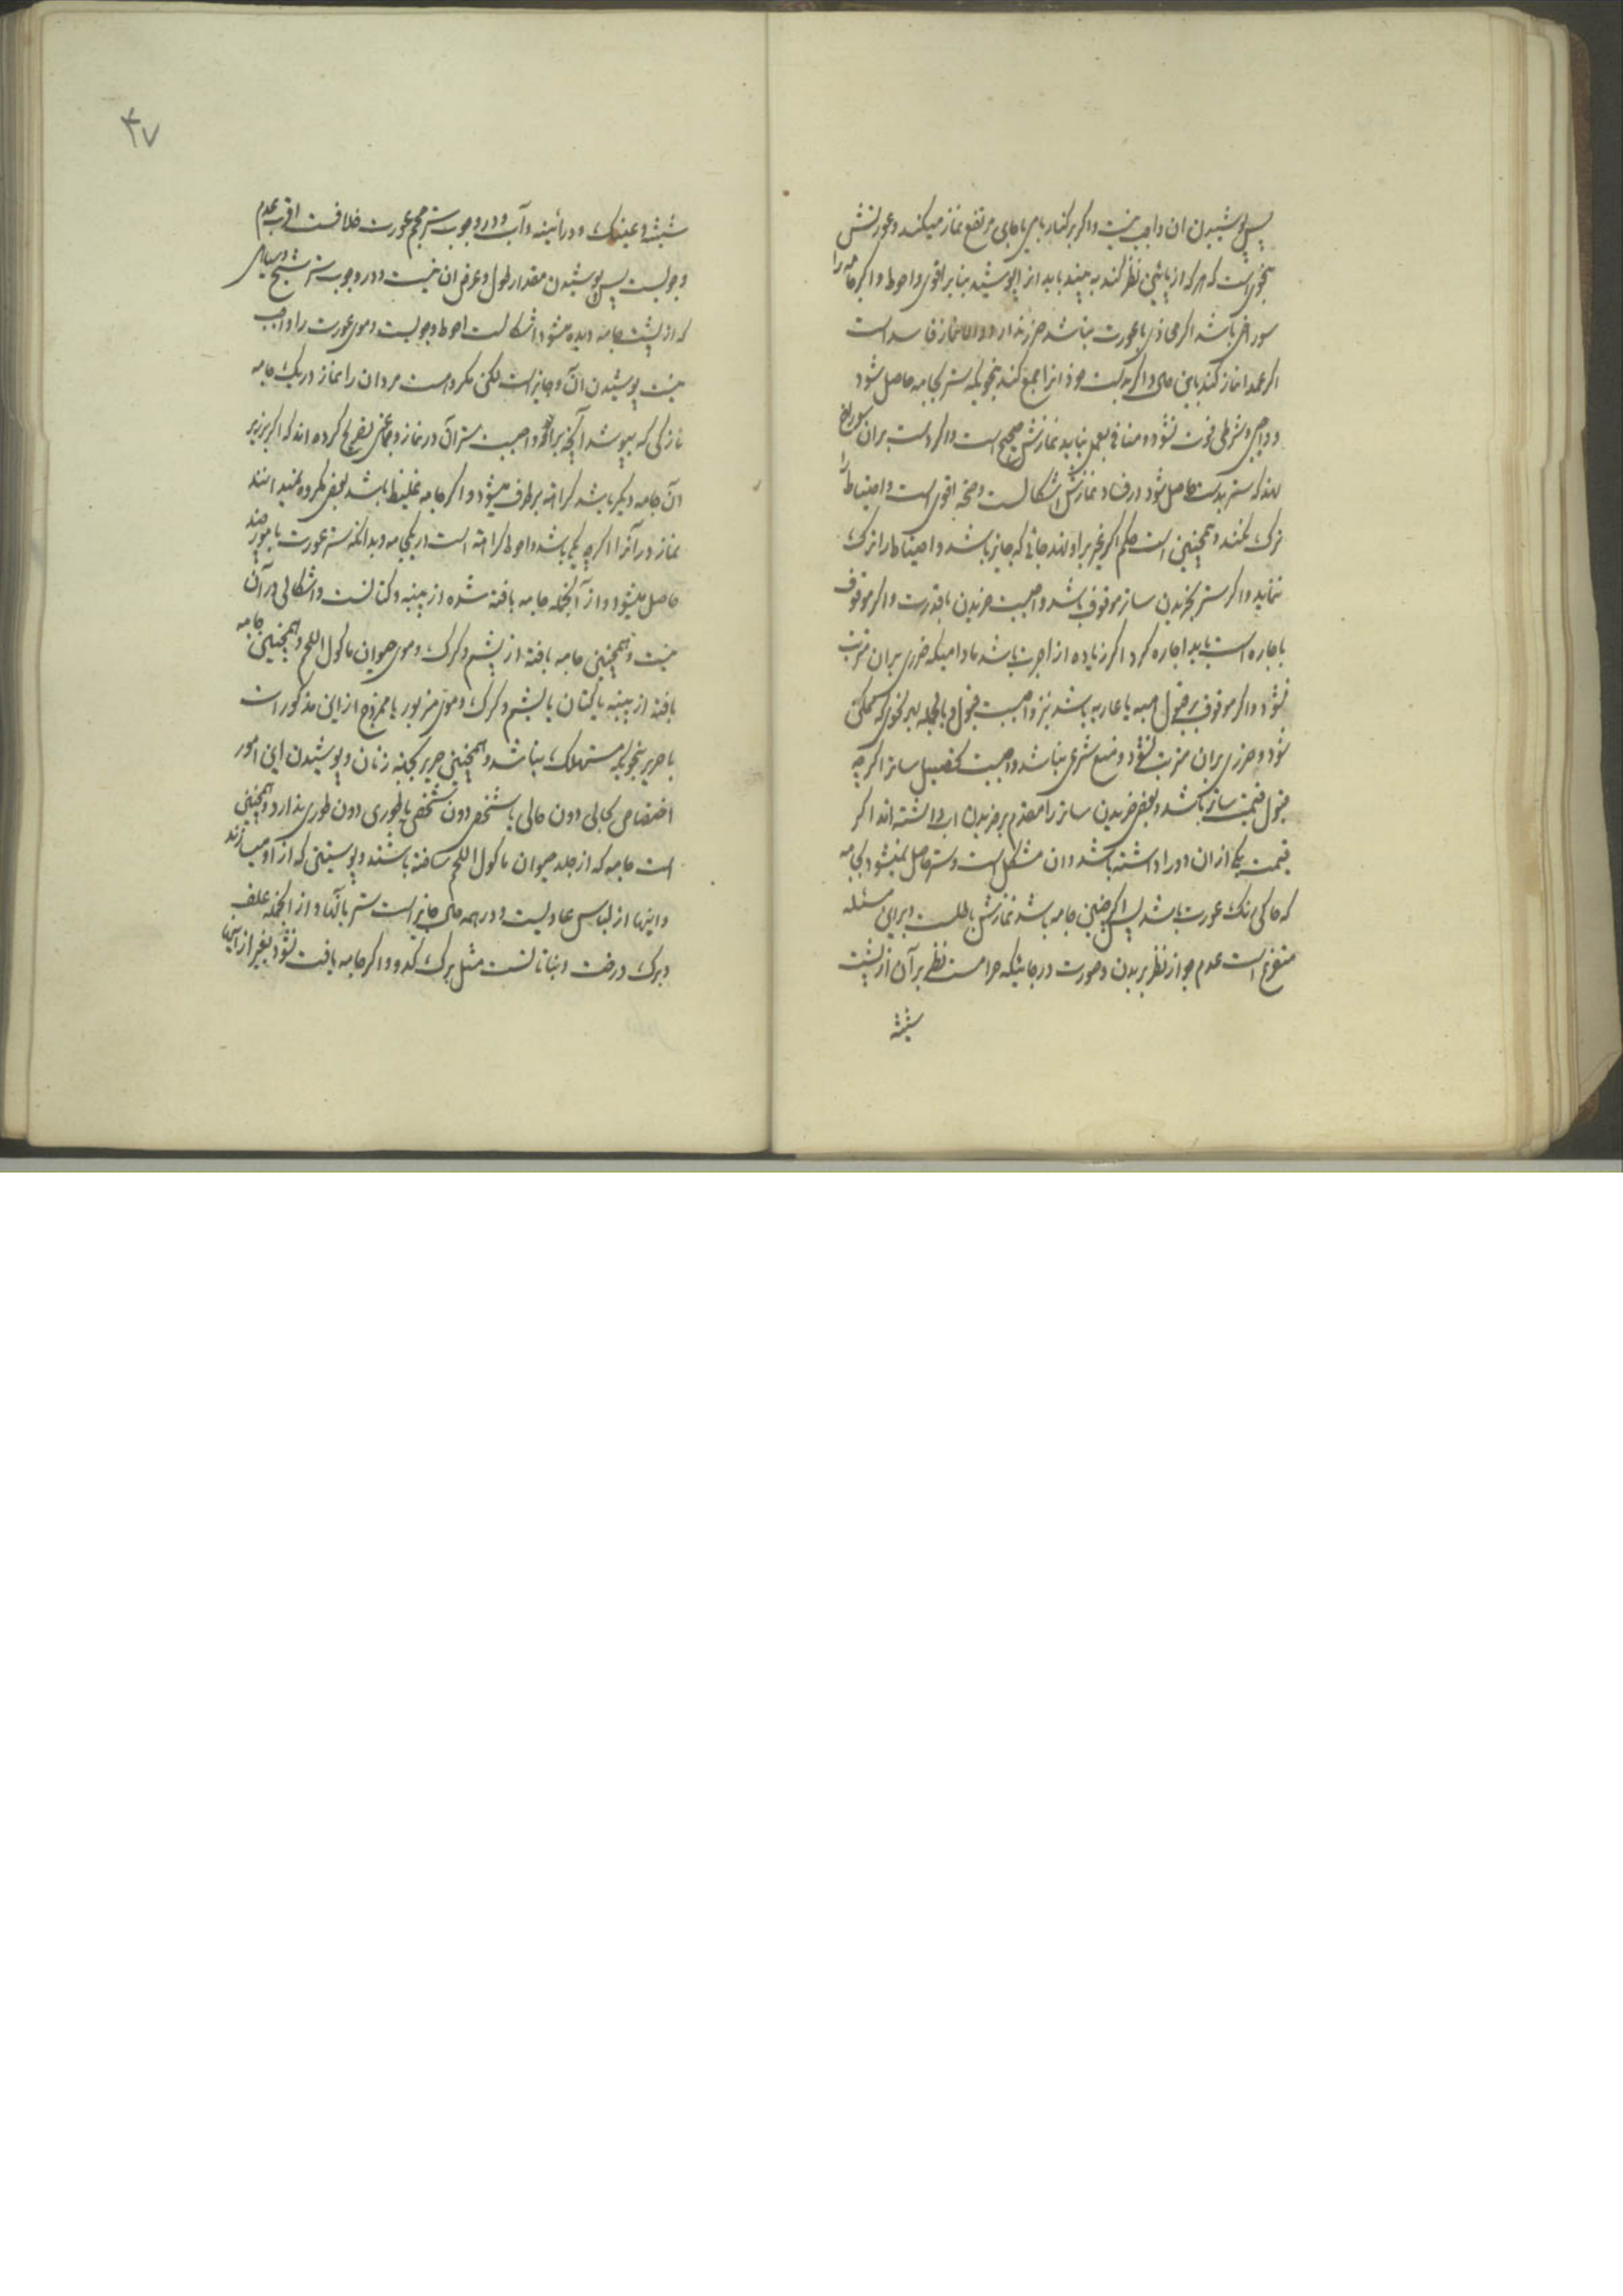 پس پوشیدن ان واجب نیست واکر برکنار بامی یا جای مرتفع نماز میکند وعورتش
بنحویست که هرکه از پائین نظر کند به بیند باید انرا پوشید بنا بر اقوی واحوط واکر جامه را
سوراخی باشد اکر محاذی با عورت نباشد ضرر ندارد والا نماز فاسد است
اکر عمدا نماز کند باین حال واکر بدست خود انرا جمع کند بنحویکه ستر بجامه حاصل شود
و واجبی وشرطی فوت نشود ومنافی بعمل نیاید نمازش صحیح است واکر دست بران سوراخ
نهد که ستر بدست حاصل شود در فساد نمازش اشکالست وصحه اقوی است واحتیاط را
ترک نکند وهمچنین است حکم اکر غیر بر او نهد جائی که جایز باشد واحتیاط را ترک
ننماید واکر ستر بخریدن ساتر موقوف باشد واجبست خریدن با قدرت واکر موقوف
باجاره است باید اجاره کرد اکر زیاده از اجرت باشد مادامیکه ضرری بران مترتب
نشود واکر موقوف بر قبول هبه یا عاریه باشد نیز واجبست قبول وبالجمله بهر نحوی که ممکن
شود وضرری بران مترتب نشود ومنع شرعی نباشد واجبست تحصیل ساتر اکرچه
بقبول قیمت ساتر باشد وبعضی خریدن ساتر را مقدم بر خریدن اب داشته اند اکر
قیمت یکی از ان دو را داشته باشد وان مشکل است وستر حاصل نمیشود بجامه
که حاکی رنک عورت باشد پس اکر چنین جامه باشد نمازش باطلست وبر این مسئله
متفرع است عدم جواز نظر بر بدن وعورت در جائیکه حرامست نظر بر آن از پشت
شیشه
۴۷
شیشه وعینک ودر آئینه وآب ودر وجوب ستر حجم عورت خلافست اقرب عدم
وجوبست پس پوشیدن مقدار طول وعرض ان نیست ودر وجوب ستر شبح وسیاهی
که از پشت جامه دیده میشود اشکالست احوط وجوبست وموی عورت را واجب
نیست پوشیدن آن وجایز است لکن مکروهست مردان را نماز در یک جامه
نازکی که بپوشد آنچه بر او واجبست ستر آن در نماز وجماعتی تصریح کرده اند که اکر بر زیر
آن جامه دیکر باشد کراهة بر طرف میشود واکر جامه غلیظ باشد بعضی مکروه نمیدانند
نماز در آنرا اکرچه یکی باشد واحوط کراهة است در یکجامه وبدانکه ستر عورت باموری چند
حاصل میشود واز آنجمله جامه بافته شده از پنبه وکتانست واشکالی در آن
نیست وهمچنین جامه بافته از پشم وکرک وموی حیوان ماکول اللحم وهمچنین جامه
بافته از پنبه یا کتان یا پشم وکرک وموی مزبور یا ممزوج از این مذکورات
با حریر بنحویکه مستهلک نباشد وهمچنین حریر بجهة زنان وپوشیدن این امور
اختصاص بحالی دون حالی یا شخصی دون شخصی یا طوری دون طوری ندارد وهمچنین
است جامه که از جلد حیوان ماکول اللحم ساخته باشند وپوستینی که از او میسازند
واینها از لباس عادیست ودر همه حال جایز است ستر بآنها واز آنجمله علف
وبرک درخت ونباتانست مثل برک کدو واکر جامه یافت نشود بغیر از اینها